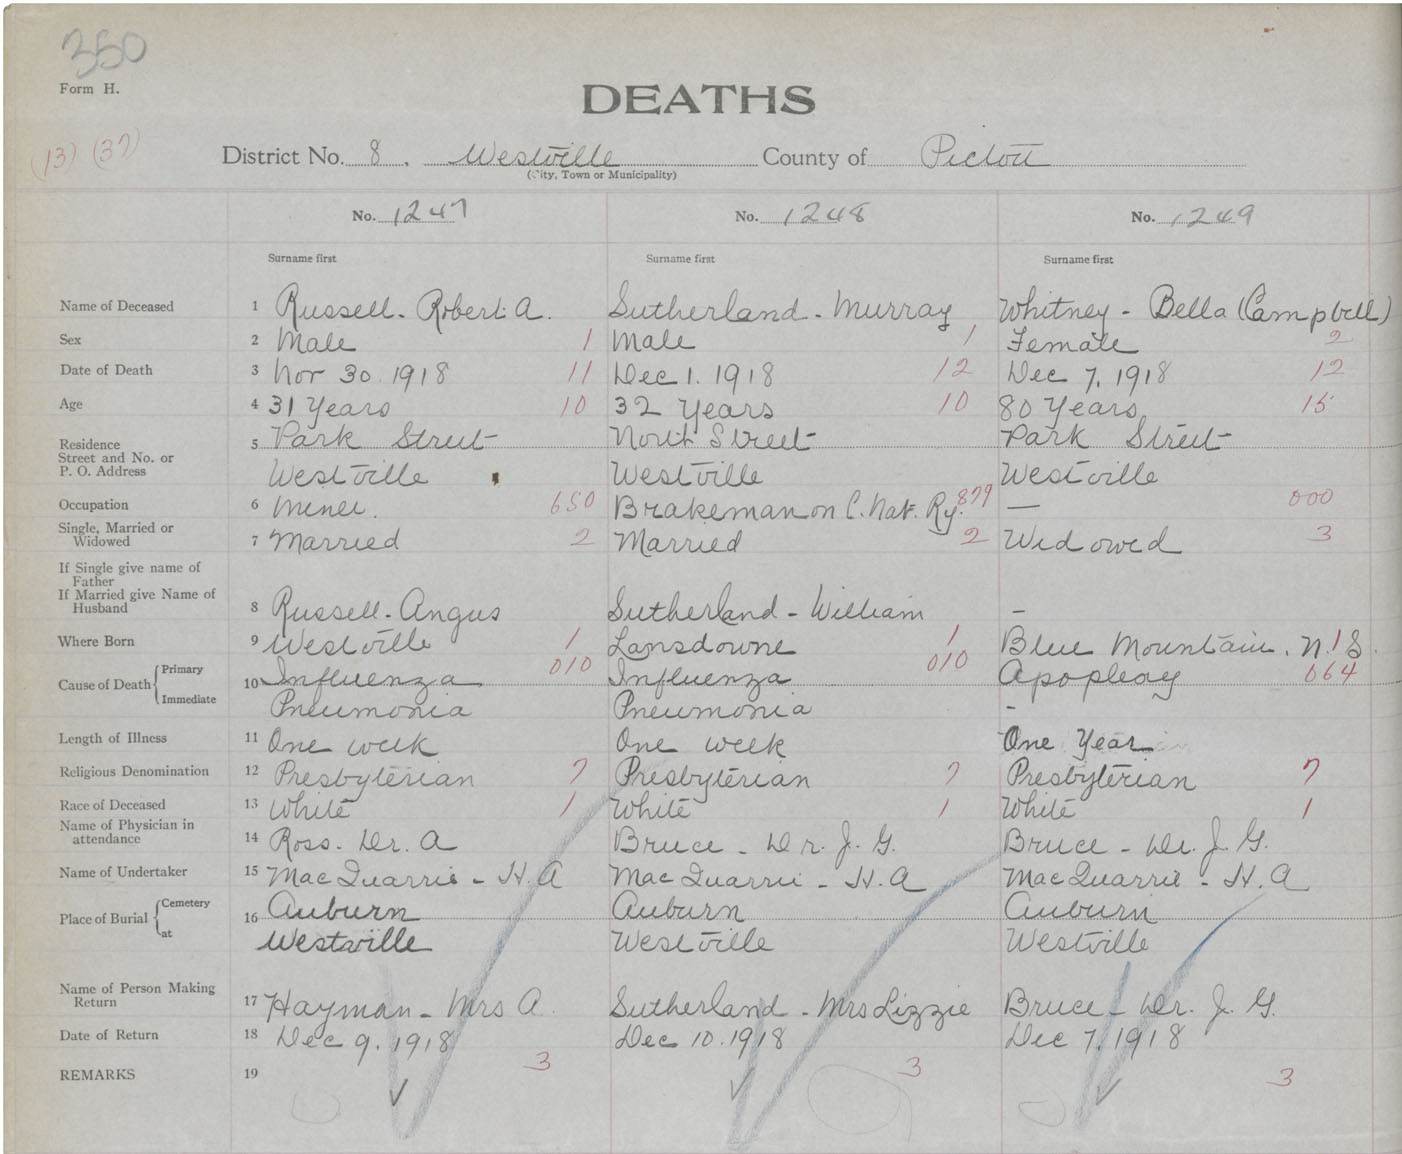 350
Form H.
DEATHS
(13) (37)
District No. 8. Westville County of Pictou
(City, Town or Municipality)
No. 1247 No. 1248 No. 1249
Surname first Surname first Surname first
Name of Deceased 1 Russell - Robert A. Sutherland - Murray Whitney - Bella (Campbell)
Sex 2 Male 1 Male 1 Female 2
Date of Death 3 Nov 30. 1918 11 Dec 1. 1918 12 Dec 7, 1918 12
Age 4 31 Years 10 32 Years 10 80 Years 15
Residence 5 Park Street North Street Park Street
Street and No. or
P. O. Address Westville Westville Westville
Occupation 6 Miner. 650 Brakeman on C. Nat. Ry. 879 — 000
Single, Married or
Widowed 7 Married 2 Married 2 Widowed 3
If Single give name of
Father
If Married give Name of
Husband 8 Russell - Angus Sutherland - William –
Where Born 9 Westville 1 Lansdowne 1 Blue Mountain. N.S. 1
Cause of Death { Primary 10 Influenza 010 Influenza 010 Apoplexy 064
Immediate Pneumonia Pneumonia -
Length of Illness 11 One week One week One Year
Religious Denomination 12 Presbyterian 7 Presbyterian 7 Presbyterian 7
Race of Deceased 13 White 1 White 1 White 1
Name of Physician in
attendance 14 Ross. Dr. A Bruce - Dr. J. G. Bruce - Dr. J. G.
Name of Undertaker 15 MacQuarrie - H. A MacQuarrie - H. A MacQuarrie - H. A
Place of Burial { Cemetery 16 Auburn Auburn Auburn
at Westville Westville Westville
Name of Person Making
Return 17 Hayman - Mrs A. Sutherland - Mrs Lizzie Bruce - Dr. J. G.
Date of Return 18 Dec 9. 1918 Dec 10. 1918 Dec 7, 1918
REMARKS 19 3 3 3